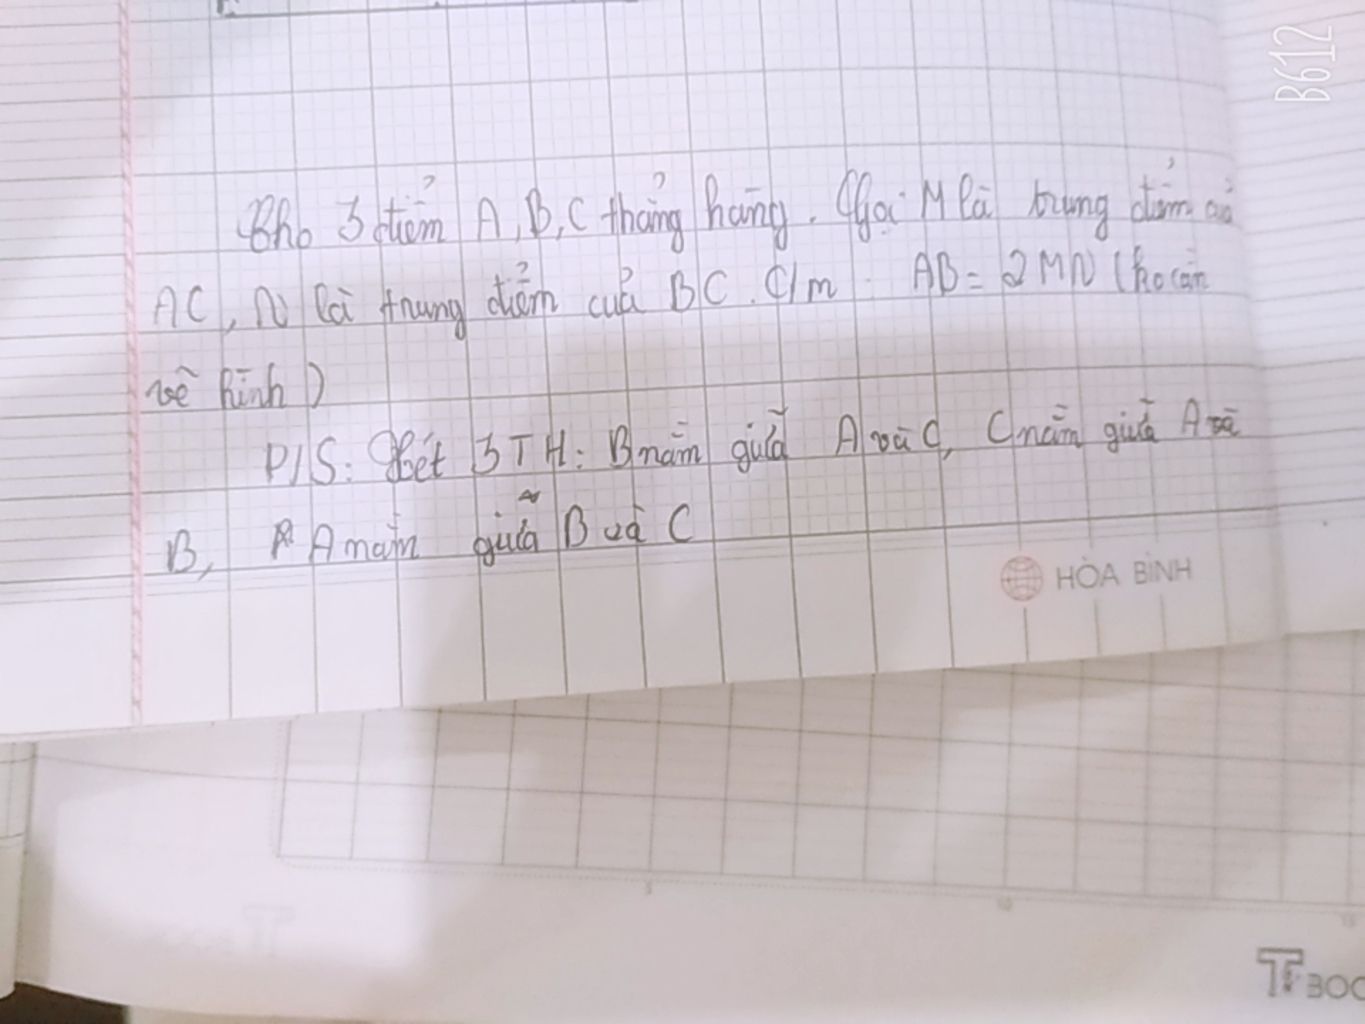 B612
Cho 3 điểm A, B, C thẳng hàng. Gọi M là trung điểm của
AC, N là trung điểm của BC. C/m AB = 2MN (ko cần
vẽ hình)
P/S: Xét 3TH: B nằm giữa A và C, C nằm giữa A và
B, A nằm giữa B và C
HÒA BÌNH
5
10
15